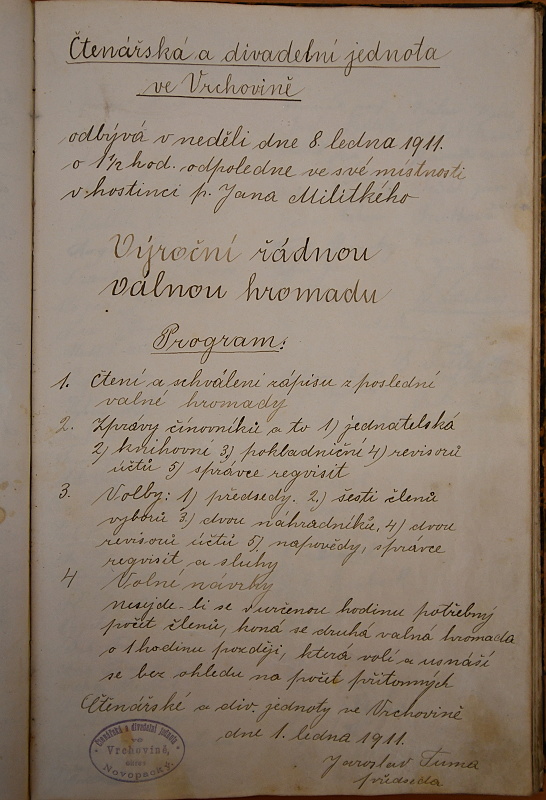 Čtenářská a divadelní jednota
ve Vrchovině
odbývá v neděli dne 8. ledna 1911.
o 1½ hod. odpoledne ve své místnosti
v hostinci p. Jana Militkého
Výroční řádnou
valnou hromadu
Program:
1. Čtení a schválení zápisu z poslední
valné hromady
2. Zprávy činovníků a to 1) jednatelská
2) knihovní 3) pokladniční 4) revisorů
účtů 5) správce regvisit
3. Volby: 1) předsedy. 2.) šesti členů
výborů 3) dvou náhradníků, 4) dvou
revisorů účtů 5) napovědy, správce
regvisit a sluhy
4 Volné návrhy
nesejde-li se v určenou hodinu potřebný
počet členů, koná se druhá valná hromada
o 1 hodinu později, která volí a usnáší
se bez ohledu na počet přítomných
Čtenářské a div. jednoty ve Vrchovině
dne 1. ledna 1911.
Čtenářská a divadelní jednota
ve
Vrchovině,
okres
Novopacký.
Jaroslav Tuma
předseda